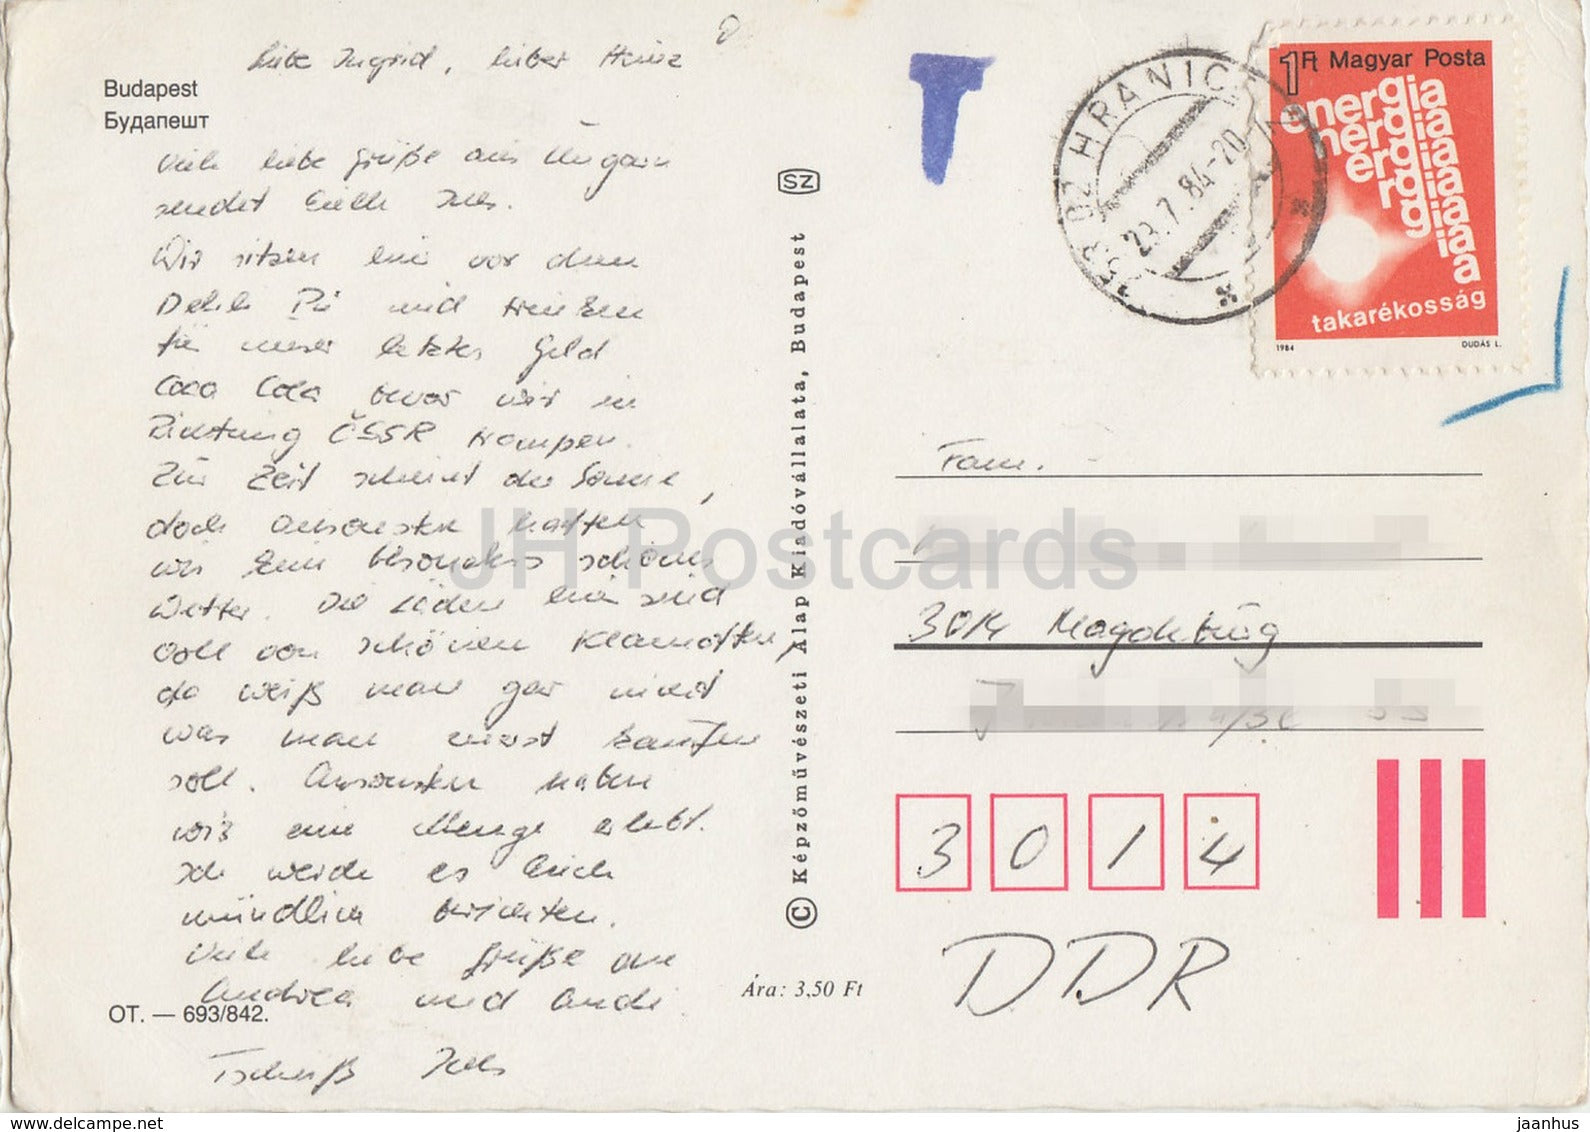 Liebe Ingrid, lieber Heinz
Budapest
Будапешт
Viele liebe Grüße aus Ungarn
sendet Euch
Wir sitzen hier vor dem
und trinken
für unser letztes Geld
Coca Cola bevor wir in
Richtung ČSSR trampen.
Zur Zeit scheint die Sonne,
doch ansonsten hatten
wir kein besonders schönes
Wetter. Die Läden hier sind
voll von schönen Klamotten,
da weiß man gar nicht
was man zuerst kaufen
soll. Ansonsten haben
wir eine Menge erlebt.
Ich werde es Euch
mündlich berichten.
Viele liebe Grüße an
Andrea und Andi
OT. — 693/842.
Tschüß
SZ
© Képzőművészeti Alap Kiadóvállalata, Budapest
Ára: 3,50 Ft
T
HRANIC
23.7.84-20
1Ft Magyar Posta
energia
energia
takarékosság
1984 DUDÁS L.
Fam.
3014 Magdeburg
3 0 1 4
DDR
JH Postcards
www.delcampe.net
jaanhus